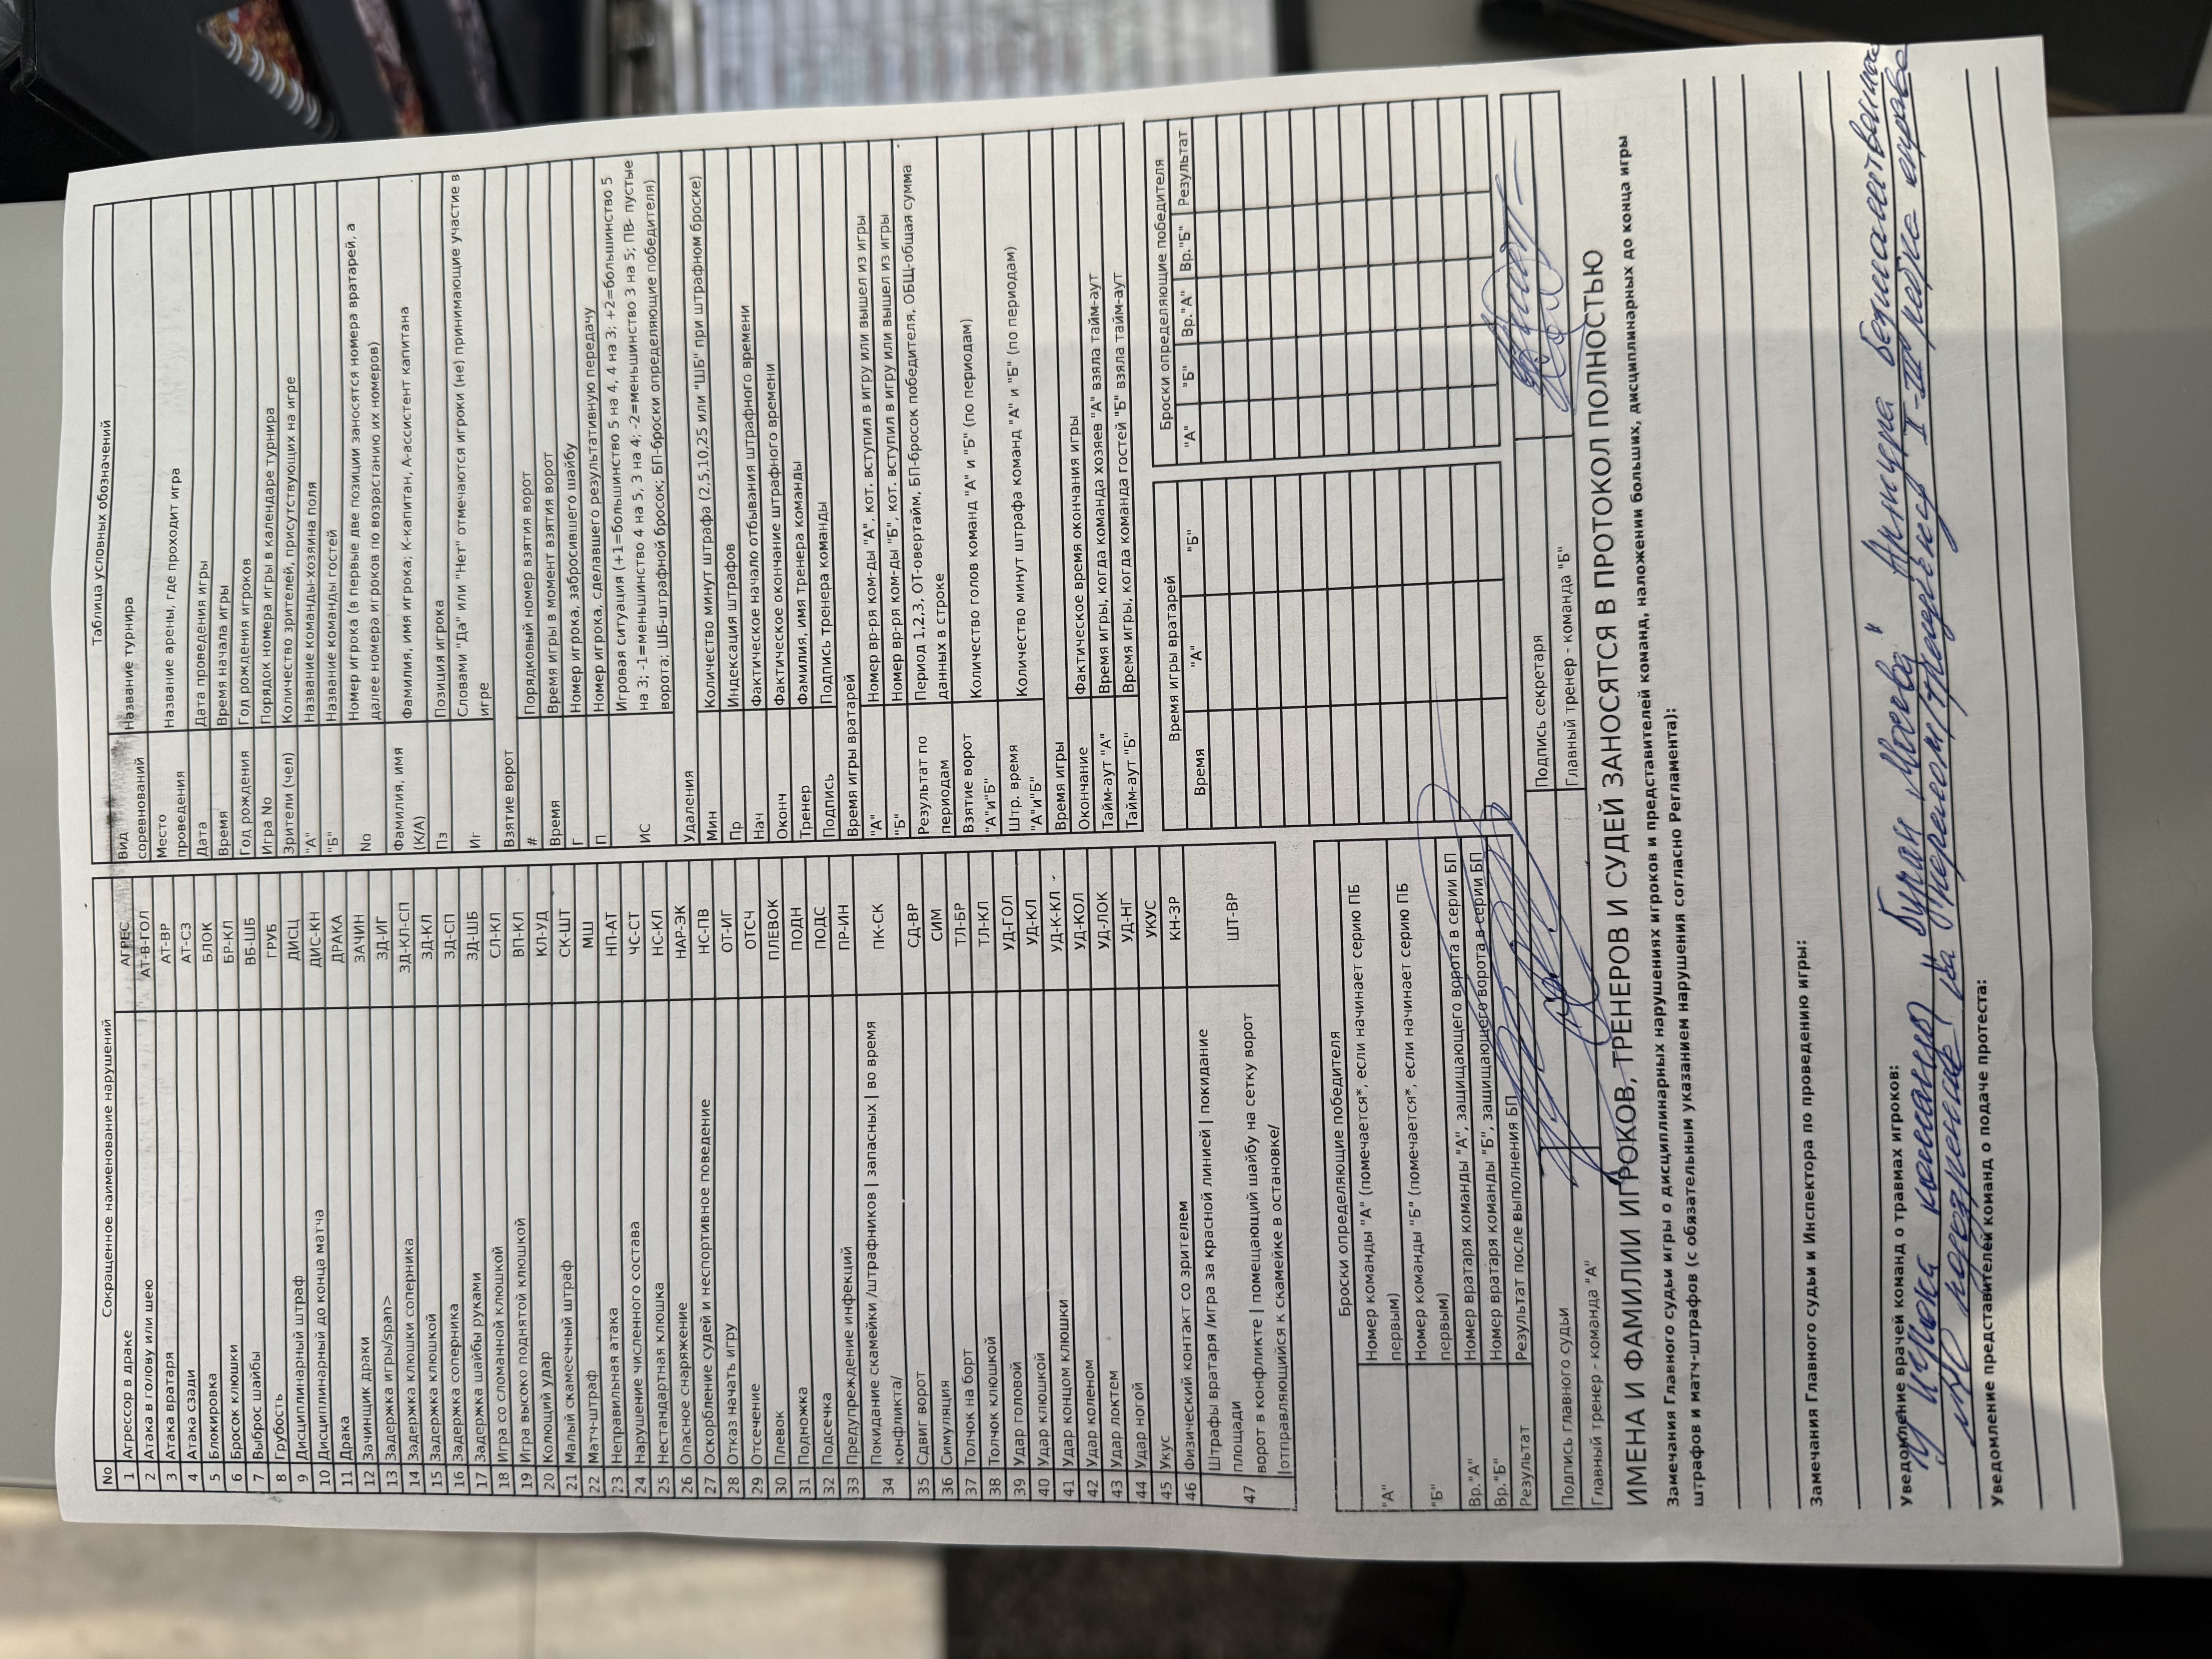 Сокращенное наименование нарушений
No
1 Агрессор в драке АГРЕС
2 Атака в голову или шею АТ-В-ГОЛ
3 Атака вратаря АТ-ВР
4 Атака сзади АТ-СЗ
5 Блокировка БЛОК
6 Бросок клюшки БР-КЛ
7 Выброс шайбы ВБ-ШБ
8 Грубость ГРУБ
9 Дисциплинарный штраф ДИСЦ
10 Дисциплинарный до конца матча ДИС-КН
11 Драка ДРАКА
12 Зачинщик драки ЗАЧИН
13 Задержка игры/span> ЗД-ИГ
14 Задержка клюшки соперника ЗД-КЛ-СП
15 Задержка клюшкой ЗД-КЛ
16 Задержка соперника ЗД-СП
17 Задержка шайбы руками ЗД-ШБ
18 Игра со сломанной клюшкой СЛ-КЛ
19 Игра высоко поднятой клюшкой ВП-КЛ
20 Колющий удар КЛ-УД
21 Малый скамеечный штраф СК-ШТ
22 Матч-штраф МШ
23 Неправильная атака НП-АТ
24 Нарушение численного состава ЧС-СТ
25 Нестандартная клюшка НС-КЛ
26 Опасное снаряжение НАР-ЭК
27 Оскорбление судей и неспортивное поведение НС-ПВ
28 Отказ начать игру ОТ-ИГ
29 Отсечение ОТСЧ
30 Плевок ПЛЕВОК
31 Подножка ПОДН
32 Подсечка ПОДС
33 Предупреждение инфекций ПР-ИН
34 Покидание скамейки /штрафников | запасных | во время ПК-СК
конфликта/
35 Сдвиг ворот СД-ВР
36 Симуляция СИМ
37 Толчок на борт ТЛ-БР
38 Толчок клюшкой ТЛ-КЛ
39 Удар головой УД-ГОЛ
40 Удар клюшкой УД-КЛ
41 Удар концом клюшки УД-К-КЛ
42 Удар коленом УД-КОЛ
43 Удар локтем УД-ЛОК
44 Удар ногой УД-НГ
45 Укус УКУС
46 Физический контакт со зрителем КН-ЗР
47 Штрафы вратаря /игра за красной линией | покидание ШТ-ВР
площади
ворот в конфликте | помещающий шайбу на сетку ворот
|отправляющийся к скамейке в остановке/
Таблица условных обозначений
Вид соревнований Название турнира
Место проведения Название арены, где проходит игра
Дата Дата проведения игры
Время Время начала игры
Год рождения Год рождения игроков
Игра No Порядок номера игры в календаре турнира
Зрители (чел) Количество зрителей, присутствующих на игре
"А" Название команды-хозяина поля
"Б" Название команды гостей
No Номер игрока (в первые две позиции заносятся номера вратарей, а
далее номера игроков по возрастанию их номеров)
Фамилия, имя (К/А) Фамилия, имя игрока; К-капитан, А-ассистент капитана
Пз Позиция игрока
Иг Словами "Да" или "Нет" отмечаются игроки (не) принимающие участие в
игре
Взятие ворот
# Порядковый номер взятия ворот
Время Время игры в момент взятия ворот
Г Номер игрока, забросившего шайбу
П Номер игрока, сделавшего результативную передачу
ИС Игровая ситуация (+1=большинство 5 на 4, 4 на 3; +2=большинство 5
на 3; -1=меньшинство 4 на 5, 3 на 4; -2=меньшинство 3 на 5; ПВ- пустые
ворота; ШБ-штрафной бросок; БП-броски определяющие победителя)
Удаления
Мин Количество минут штрафа (2,5,10,25 или "ШБ" при штрафном броске)
Пр Индексация штрафов
Нач Фактическое начало отбывания штрафного времени
Оконч Фактическое окончание штрафного времени
Тренер Фамилия, имя тренера команды
Подпись Подпись тренера команды
Время игры вратарей
"А" Номер вр-ря ком-ды "А", кот. вступил в игру или вышел из игры
"Б" Номер вр-ря ком-ды "Б", кот. вступил в игру или вышел из игры
Результат по периодам Период 1,2,3, ОТ-овертайм, БП-бросок победителя, ОБЩ-общая сумма
данных в строке
Взятие ворот "А"и"Б" Количество голов команд "А" и "Б" (по периодам)
Штр. время "А"и"Б" Количество минут штрафа команд "А" и "Б" (по периодам)
Время игры
Окончание Фактическое время окончания игры
Тайм-аут "А" Время игры, когда команда хозяев "А" взяла тайм-аут
Тайм-аут "Б" Время игры, когда команда гостей "Б" взяла тайм-аут
Броски определяющие победителя
"А" Номер команды "А" (помечается*, если начинает серию ПБ
первым)
"Б" Номер команды "Б" (помечается*, если начинает серию ПБ
первым)
Вр."А" Номер вратаря команды "А", защищающего ворота в серии БП
Вр."Б" Номер вратаря команды "Б", защищающего ворота в серии БП
Результат Результат после выполнения БП
Время игры вратарей
Время "А" "Б"
Броски определяющие победителя
"А" "Б" Вр."А" Вр."Б" Результат
Подпись главного судьи Подпись секретаря
Главный тренер - команда "А" Главный тренер - команда "Б"
ИМЕНА И ФАМИЛИИ ИГРОКОВ, ТРЕНЕРОВ И СУДЕЙ ЗАНОСЯТСЯ В ПРОТОКОЛ ПОЛНОСТЬЮ
Замечания Главного судьи игры о дисциплинарных нарушениях игроков и представителей команд, наложении больших, дисциплинарных до конца игры
штрафов и матч-штрафов (с обязательным указанием нарушения согласно Регламента):
Замечания Главного судьи и Инспектора по проведению игры:
Уведомление врачей команд о травмах игроков:
У игрока команды "Буран Москва"
подозрение на перелом справа
Уведомление представителей команд о подаче протеста: